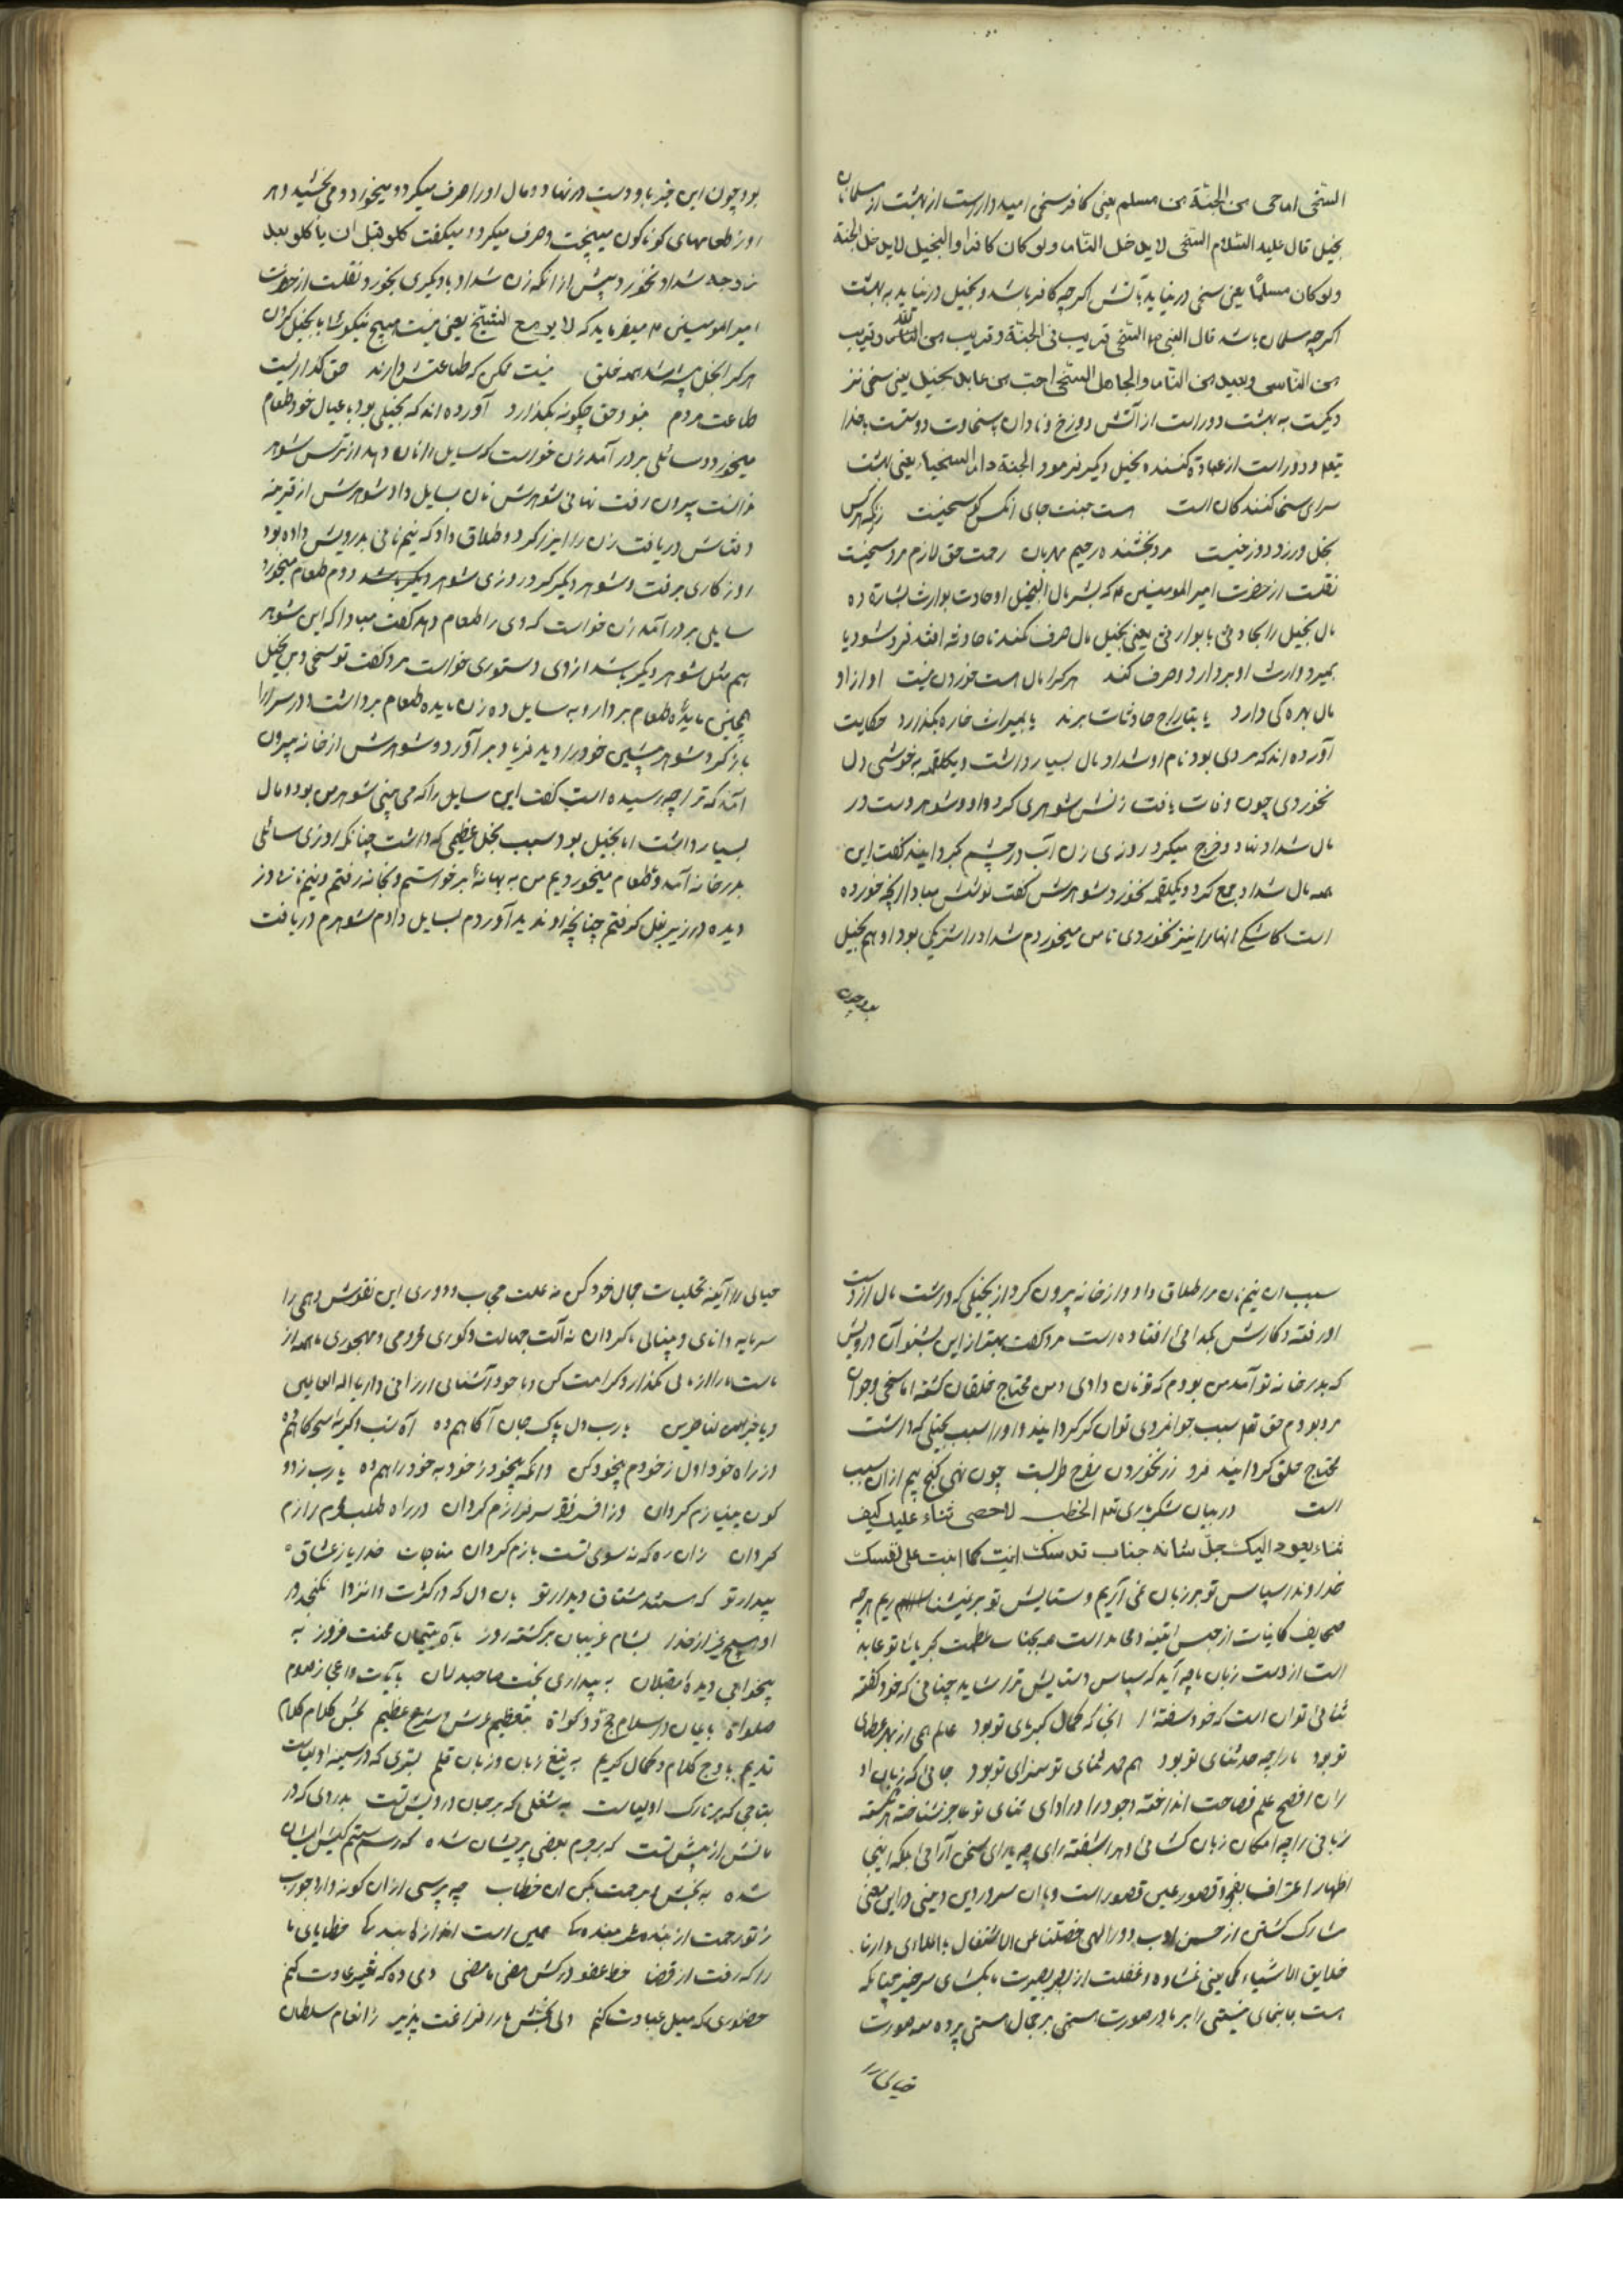 السّخی ارجی من الجنّة من مسلم یعنی کافر سخی امید دارترست از بهشت از مسلمانان
بخیل قال علیه السّلام السّخی لا یدخل النّار ولو کان کافرا والبخیل لا یدخل الجنة
ولو کان مسلماً یعنی سخی در نیاید بآتش اکرچه کافر باشد و بخیل در نیاید به بهشت
اکرچه مسلمان باشد قال النبی السّخی قریب فی الجنّة و قریب من اللّه و قریب
من النّاس و بعید من النّار والجاهل السّخی احبّ من عابد بخیل یعنی سخی نز
دیکست به بهشت و دور است از آتش دوزخ و نادان سخاوت دوستست بخدا
تعم و دور است از عبادة کننده بخیل و دیکر فرمود الجنة دار السخیاء یعنی بهشت
سرای سخا کنندکان است هست جنت جای انکس کو سخیست زانکه هرکس
بخل ورزد دوزخیست مرد بخشنده رحیم مهربان رحمت حق لازم مرد سخیست
نقلست از حضرت امیر المومنین ع که بشر مال البخیل او حادث بوارث بشارة ده
مال بخیل را بحادثی یا بوارثی یعنی بخیل مال صرف نکند تا حادثه افتد فرد شود یا
بمیرد وارث او بردارد و صرف کند هرکرا مال هست خوردن نیست او از او
مال بهره کی دارد یا بتاراج حادثات برند یا بمیراث خاره بکذارد حکایت
آورده اند که مردی بود نام او شداد مال بسیار داشت و یکلقمه بخوشی دل
نخوردی چون وفات یافت زنش شوهری کرد و او دست در
مال شداد نهاد و خرج میکرد روزی زن آب در چشم کردانید کفت این
همه مال شداد جمع کرد و یکلقمه نخورد شوهرش کفت نوشش مباد آنچه خورده
است کاشکی انها را نیز نخوردی تا من میخوردم شداد را شریکی بود او هم بخیل
بود چون
بود چون این خبر باو دست در نهاد و مال او را صرف میکرد و میخورد و می بخشید و هر
روز طعامهای کوناکون میپخت و صرف میکرد و میکفت کلو قبل ان یا کلو بعد
زوجه شداد بخورد پیش از آنکه زن شداد با دیکری بخورد نقلست از حضرت
امیرالمومنین ع میفرماید که لا یو مع الشّح یعنی نیست هیچ نیکوئی با بخیل کردن
هرکرا بخل پیشه شد همه خلق نیست ممکن که طاعتش دارند حق کذاریست
طاعت مردم بنود حق چکونه بکذارد آورده اند که بخیلی بود با عیال خود طعام
میخورد و سائلی بر در آمد زن خواست که سایل را نان دهد از ترس شوهر
نتوانست بیرون رفت نهانی شوهرش نان بسایل داد شوهرش از قرینه
دریافت زن را ایزر کرد و طلاق داد که نیم نانی بدرویش داده بود
روزکاری برفت و شوهر دیکر کرد روزی شوهر دیکر باشد دوم طعام میخورد
سایلی بر در آمد زن خواست که وی را طعام دهد کفت مبادا که این شوهر
هم مثل شوهر دیکر باشد از وی دستوری خواست مرد کفت تو سخی و من بخیل
همچنین مایده طعام بردار و به سایل ده زن مایده طعام برداشت و در سرا را
باز کرد شوهر پیشین خود را دید فریاد برآورد و شوهرش از خانه بیرون
آمد که ترا چه رسیده است کفت این سایل را که می بینی شوهر من بود و مال
بسیار داشت اما بخیل بود سبب بخل عظیمی که داشت چنانکه روزی سائلی
بدر خانه آمد و طعام میخوردیم من به بهانهٔ برخواستم و بخانه رفتم و نیم نان دز
دیده در زیر بغل کرفتم چنانچه او ندید آوردم بسایل دادم شوهرم دریافت
سبب ان نیم نان مرا طلاق داد و از خانه بیرون کرد از بخیلی که داشت مال از دست
او رفته و کارش بکدائی افتاده است مرد کفت بهتر از این بشنو آن درویش
که بدر خانه تو آمد من بودم که تو نان دادی و من محتاج خلقان کشته اما سخی و جوان
مرد بودم حق تعم سبب جوانمردی توانکر کردانید و او را سبب بخیلی که داشت
محتاج خلق کردانید فرد زر نخوردن چون نهی کنج بیم ازان سبب
است در بیان شکر باری تعم الخطب لا احصی ثناء علیک کیف
ثناء یعود الیک جلّ شانه جناب قدسک انت کما اثنیت علی نفسک
خداوندا سپاس تو بر زبان نمی آریم و ستایش تو بر نمیشماریم هرچه
صحایف کاینات از جنس اثنیه و محامد است همه بجناب عظمت کبریای تو عاید
است از دست زبان ما چه آید که سپاس و ستایش ترا شاید چنانی که خود کفته
ثنای توان است که خود سفته انجا که کمال کبریای تو بود عالم نمی از بهر عطای
تو بود ما را چه حد ثنای تو بود هم حمد ثنای تو سزای تو بود جائی که زبان او
ران افصح علم فصاحت انداخته و خود را در ادای ثنای تو عاجز شناخته هر شکسته
زبانی را چه امکان زبان کشائی و هر اشفته رای چه یارای سخن آرائی بلکه اینجا
اظهار اعتراف بعجز و قصور عین قصور است و با ان سرور دین و دینی در این معنی
مشارک کشتن از حسن ادب دور الهی خصّلنا عن الاشتغال بالملاهی وارنا
حقایق الاشیاء کما هی غشاوه غفلت از بصر بصیرت ما بکشای سر خبر چنانکه
هست بما بنمای نیستی را بر ما در صورت هستی بر جمال هستی پرده منه صورت
خیالی را
خیالی را آینه تجلیات جمال خود کن نه علت حجاب و دوری این نقوش وهمی را
سرمایه دانائی و بینائی ما کردان نه آلت جهالت و کوری محرومی و مهجوری ما همه از
ماست ما را از مالی مکذار و کرامت کن و با خود آشنائی ارزانی دار یا اله العالمین
و یا خیر الناصرین یارب دل پاک جان آکاهم ده آه شب و کریه سحرکاهم ده
در راه خود اول زخودم بیخود کن وانکه بیخود ز خود به خود راهم ده یارب ز دو
کون بی نیازم کردان وز افسر فقر سرفرازم کردان در راه طلب محرم رازم
کردان زان ره که نه سوی تست بازم کردان مناجات خدایا ز عشاق
بیدار تو که هستند مشتاق دیدار تو بان دل که در کثرت نکنجد در
او هیچ غیر از خدا بشام غریبان برکشته روز باه یتیمان محنت فروز به
بیخوابی دیده مقبلان به بیداری بخت صاحبدلان بآیات و اعجاز و صوم
صلواة بایمان و اسلام حج و زکواة بتعظیم عرش و شرع عظیم بحُسن کلام کلام
قدیم باوج کلام و کمال کریم به تیغ زبان و زبان قلم بسّری که در سینه اولیاست
بتاجی که بر تارک اولیاست به شغلی که بر جان درویش تست بدردی که در
ما تش از پیش تست که بر جرم بعضی پریشان شده که رسم ستم کیش ایشان
شده به بخش برحمت بکن ان خطاب چه پرسی ازان کونه وارد جواب
ز تو رحمت از بنده شرمندکی همین است خطایای ما
را که رفت از قضا خط عفو درکش مضی ما مضی دمی ده که تغییر عادت کنم
حضوری که میل عبادت کنم دلی بخش ما را فراغت پذیر ز انعام سلطان